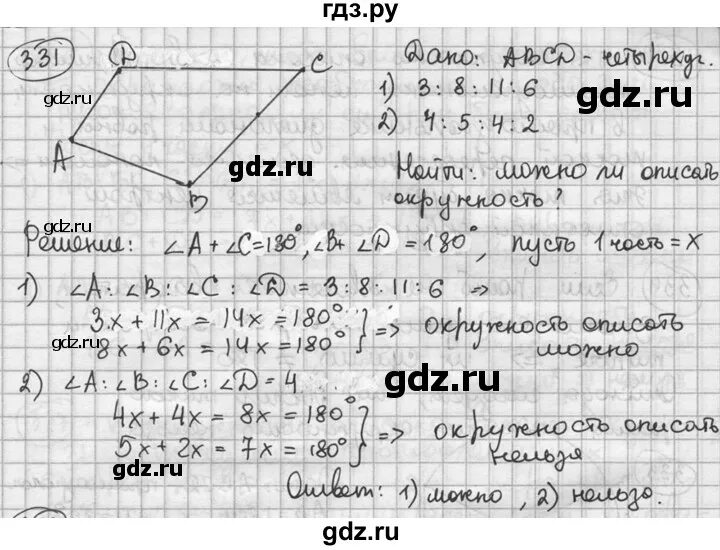 гдз.ру
331
D
C
A
B
Дано: ABCD - четырехуг.
1) 3 : 8 : 11 : 6
2) 4 : 5 : 4 : 2
Найти: можно ли описать
окружность?
Решение: ∠A + ∠C = 180°, ∠B + ∠D = 180°, пусть 1 часть = x
1) ∠A : ∠B : ∠C : ∠D = 3 : 8 : 11 : 6 =>
3x + 11x = 14x = 180° } => окружность описать
8x + 6x = 14x = 180° можно
2) ∠A : ∠B : ∠C : ∠D = 4
4x + 4x = 8x = 180° } => окружность описать
5x + 2x = 7x = 180° нельзя
Ответ: 1) можно, 2) нельзя.
gdz.ru
gdz.ru
gdz.ru
gdz.ru
gdz.ru
gdz.ru
gdz.ru
gdz.ru
gdz.ru
gdz.ru